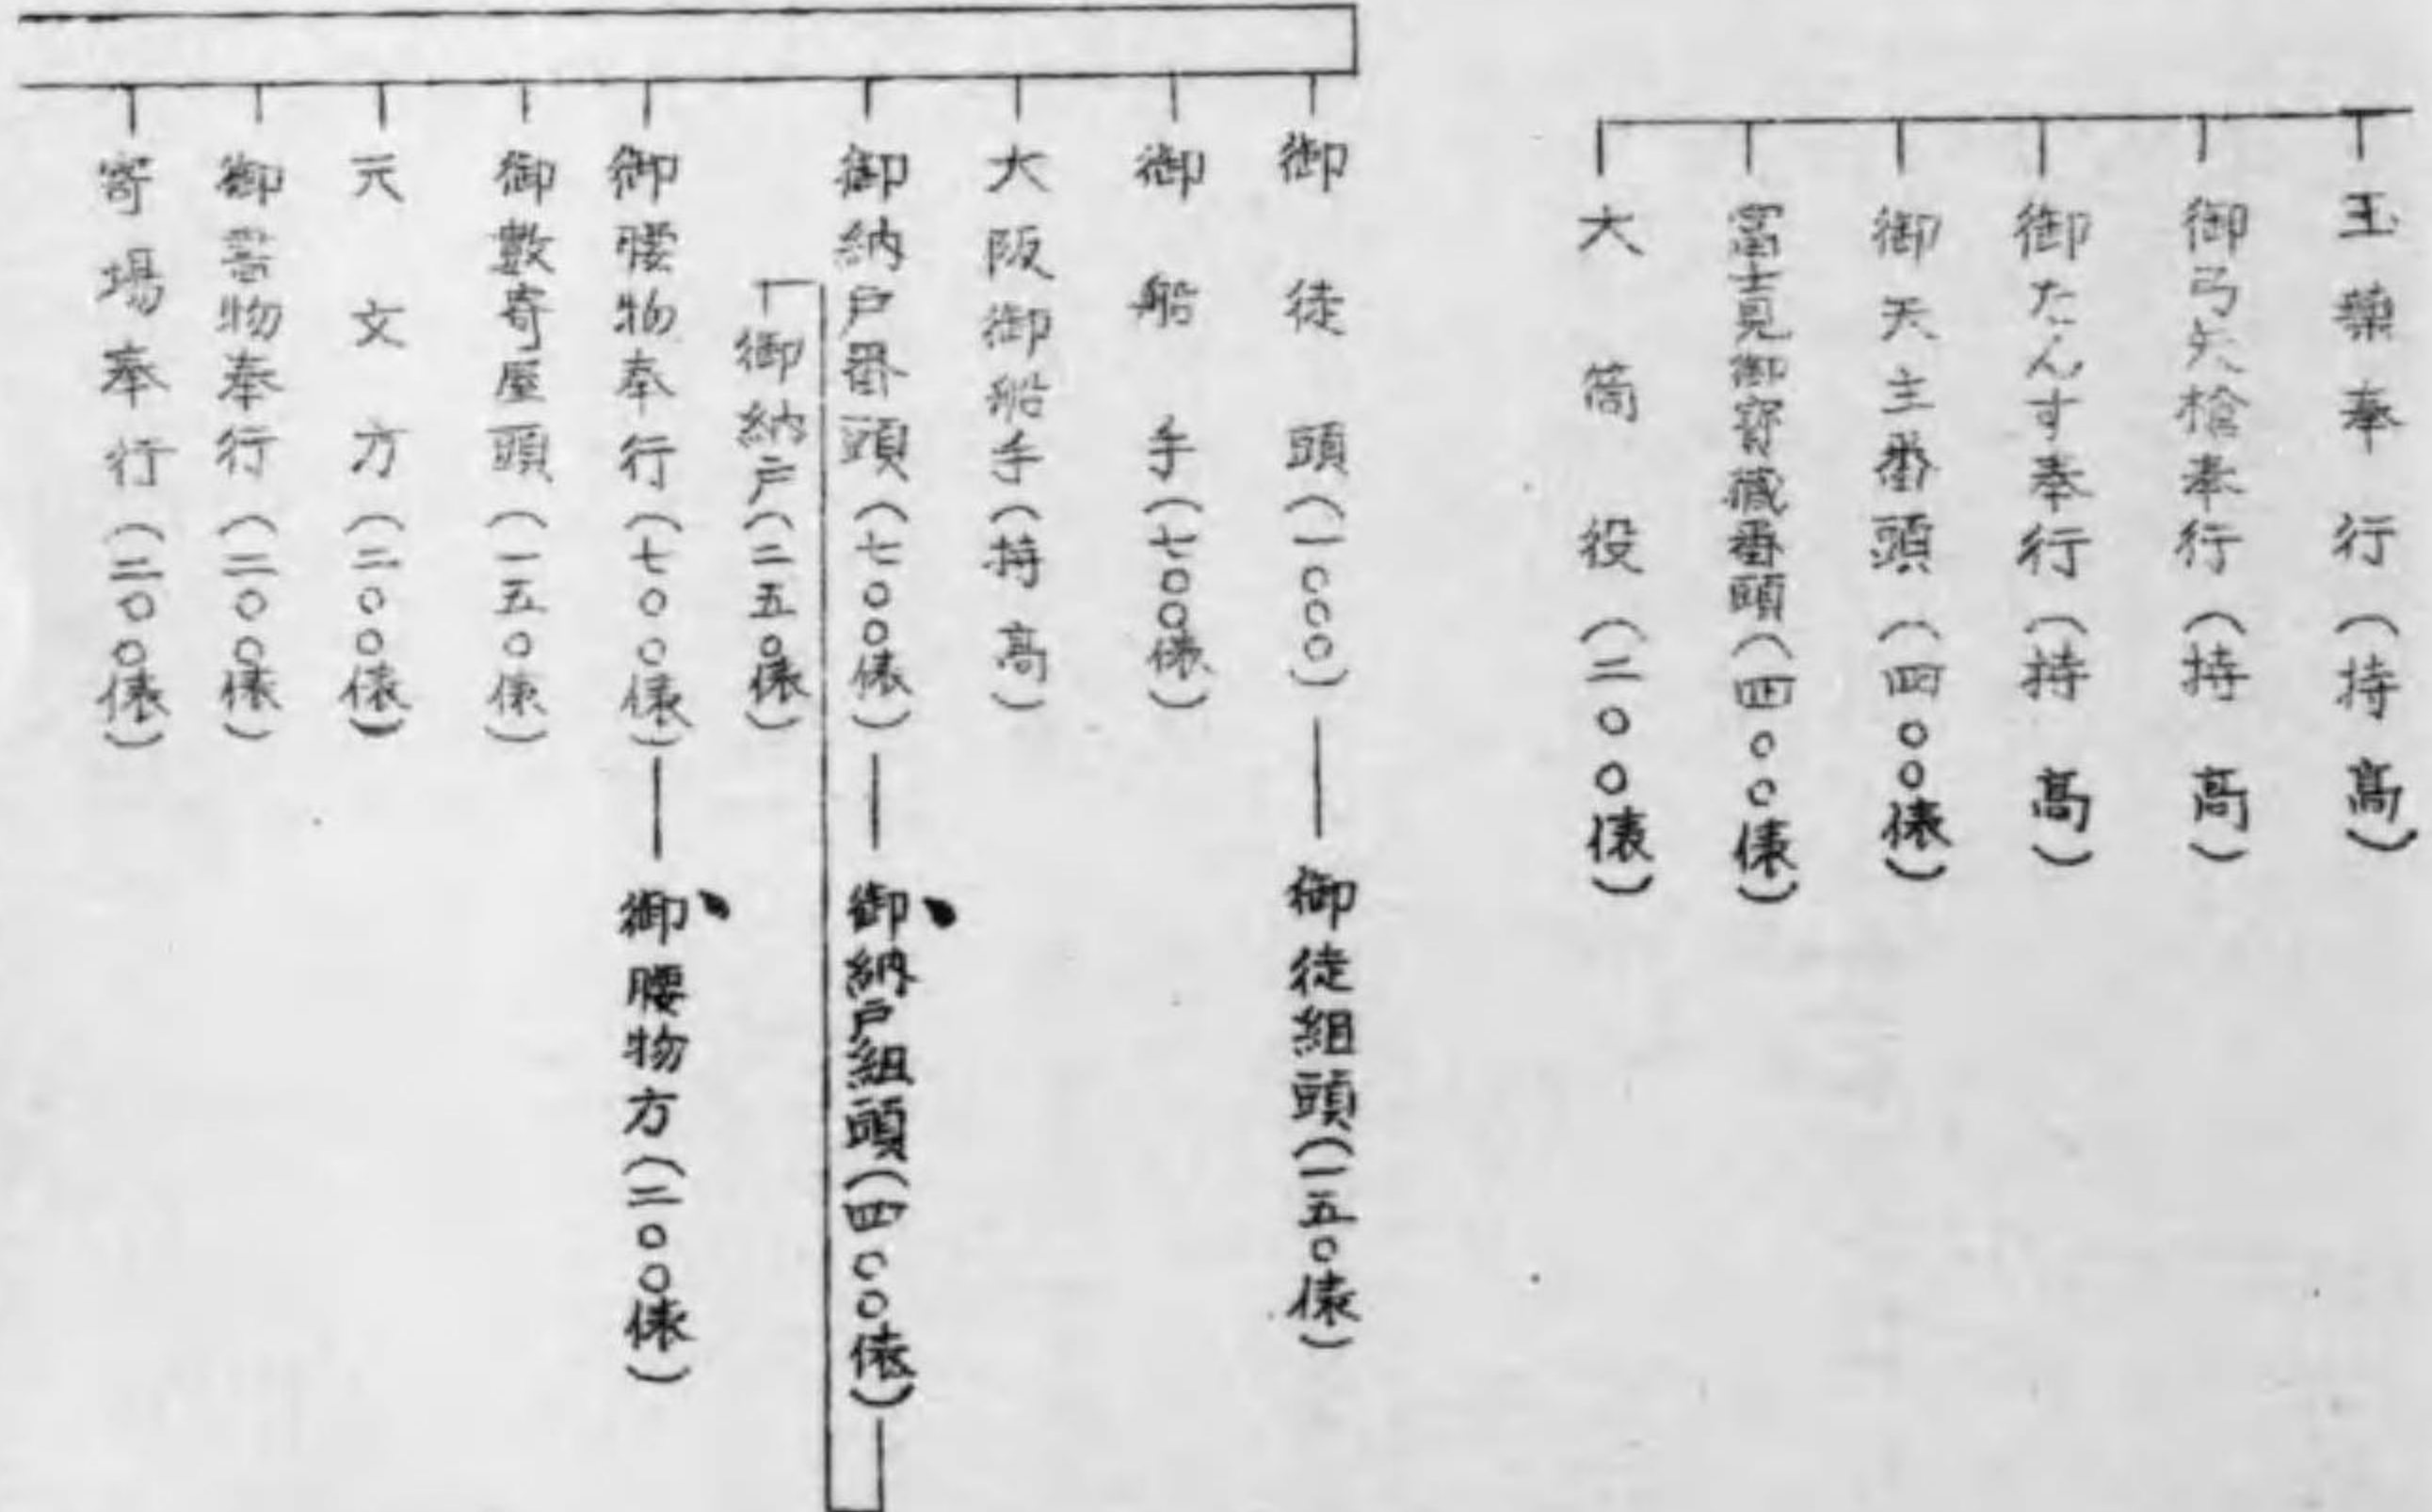 玉藥奉行(持高)
御弓矢槍奉行(持高)
御たんす奉行(持高)
御天主番頭(四〇〇俵)
富士見御寳藏番頭(四〇〇俵)
大筒役(二〇〇俵)
御徒頭(一〇〇〇)
御徒組頭(一五〇俵)
御船手(七〇〇俵)
大阪御船手(持高)
御納戸番頭(七〇〇俵)
御納戸組頭(四〇〇俵)
御納戸(二五〇俵)
御腰物奉行(七〇〇俵)
御腰物方(二〇〇俵)
御數寄屋頭(一五〇俵)
天文方(二〇〇俵)
御書物奉行(二〇〇俵)
寄場奉行(二〇〇俵)